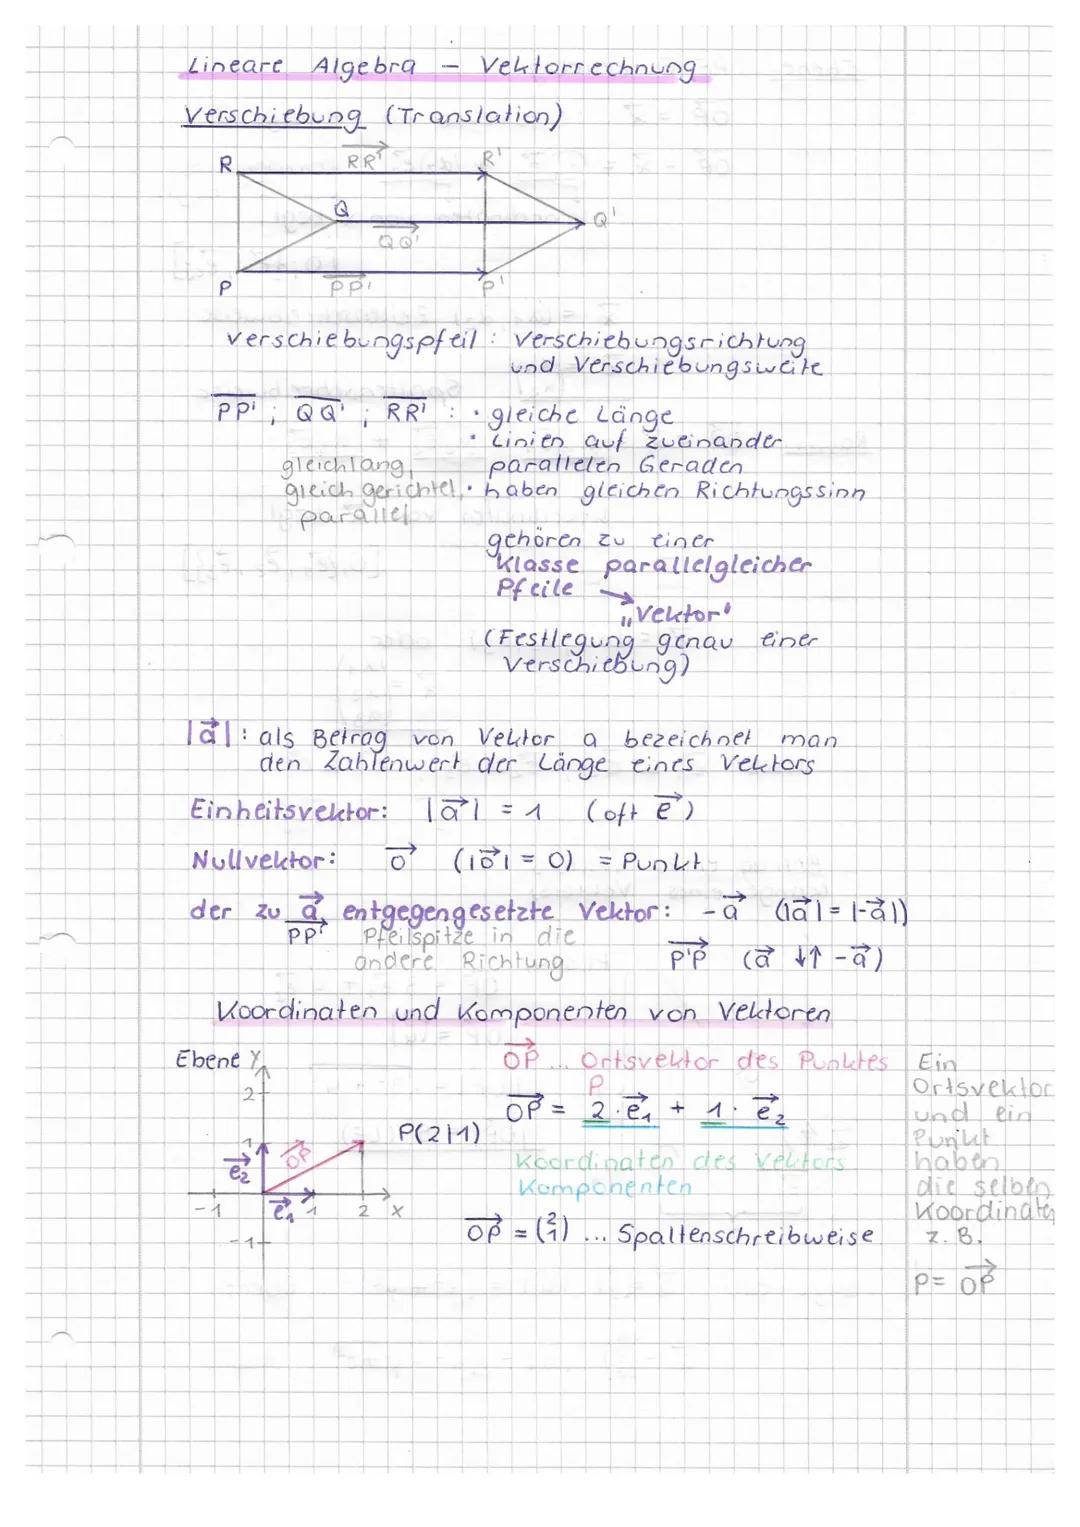 Lineare Algebra - Vektorrechnung
Verschiebung (Translation)
R RR' R'
Q Q'
QQ'
P PP' P'
Verschiebungspfeil: Verschiebungsrichtung
und Verschiebungsweite
PP' ; QQ' ; RR' : • gleiche Länge
• Linien auf zueinander
gleichlang, parallelen Geraden
gleich gerichtet, • haben gleichen Richtungssinn
parallel
gehören zu einer
Klasse parallelgleicher
Pfeile →
„Vektor"
(Festlegung genau einer
Verschiebung)
|a⃗|: als Betrag von Vektor a bezeichnet man
den Zahlenwert der Länge eines Vektors
Einheitsvektor: |a⃗| = 1 (oft e⃗)
Nullvektor: o⃗ (|o⃗| = 0) = Punkt
der zu a⃗ entgegengesetzte Vektor: -a⃗ (|a⃗| = |-a⃗|)
PP' Pfeilspitze in die
andere Richtung P'P (a⃗ ↓↑ -a⃗)
Koordinaten und Komponenten von Vektoren
Ebene y
OP ... Ortsvektor des Punktes
P
2
OP = 2·e⃗₁ + 1·e⃗₂
P(2|1)
1
OP
e⃗₂
Koordinaten des Vektors
Komponenten
-1 e⃗₁ 1 2 x
-1
OP = (2 1) ... Spaltenschreibweise
Ein
Ortsvektor
und ein
Punkt
haben
die selben
Koordinaten
z.B.
P = OP